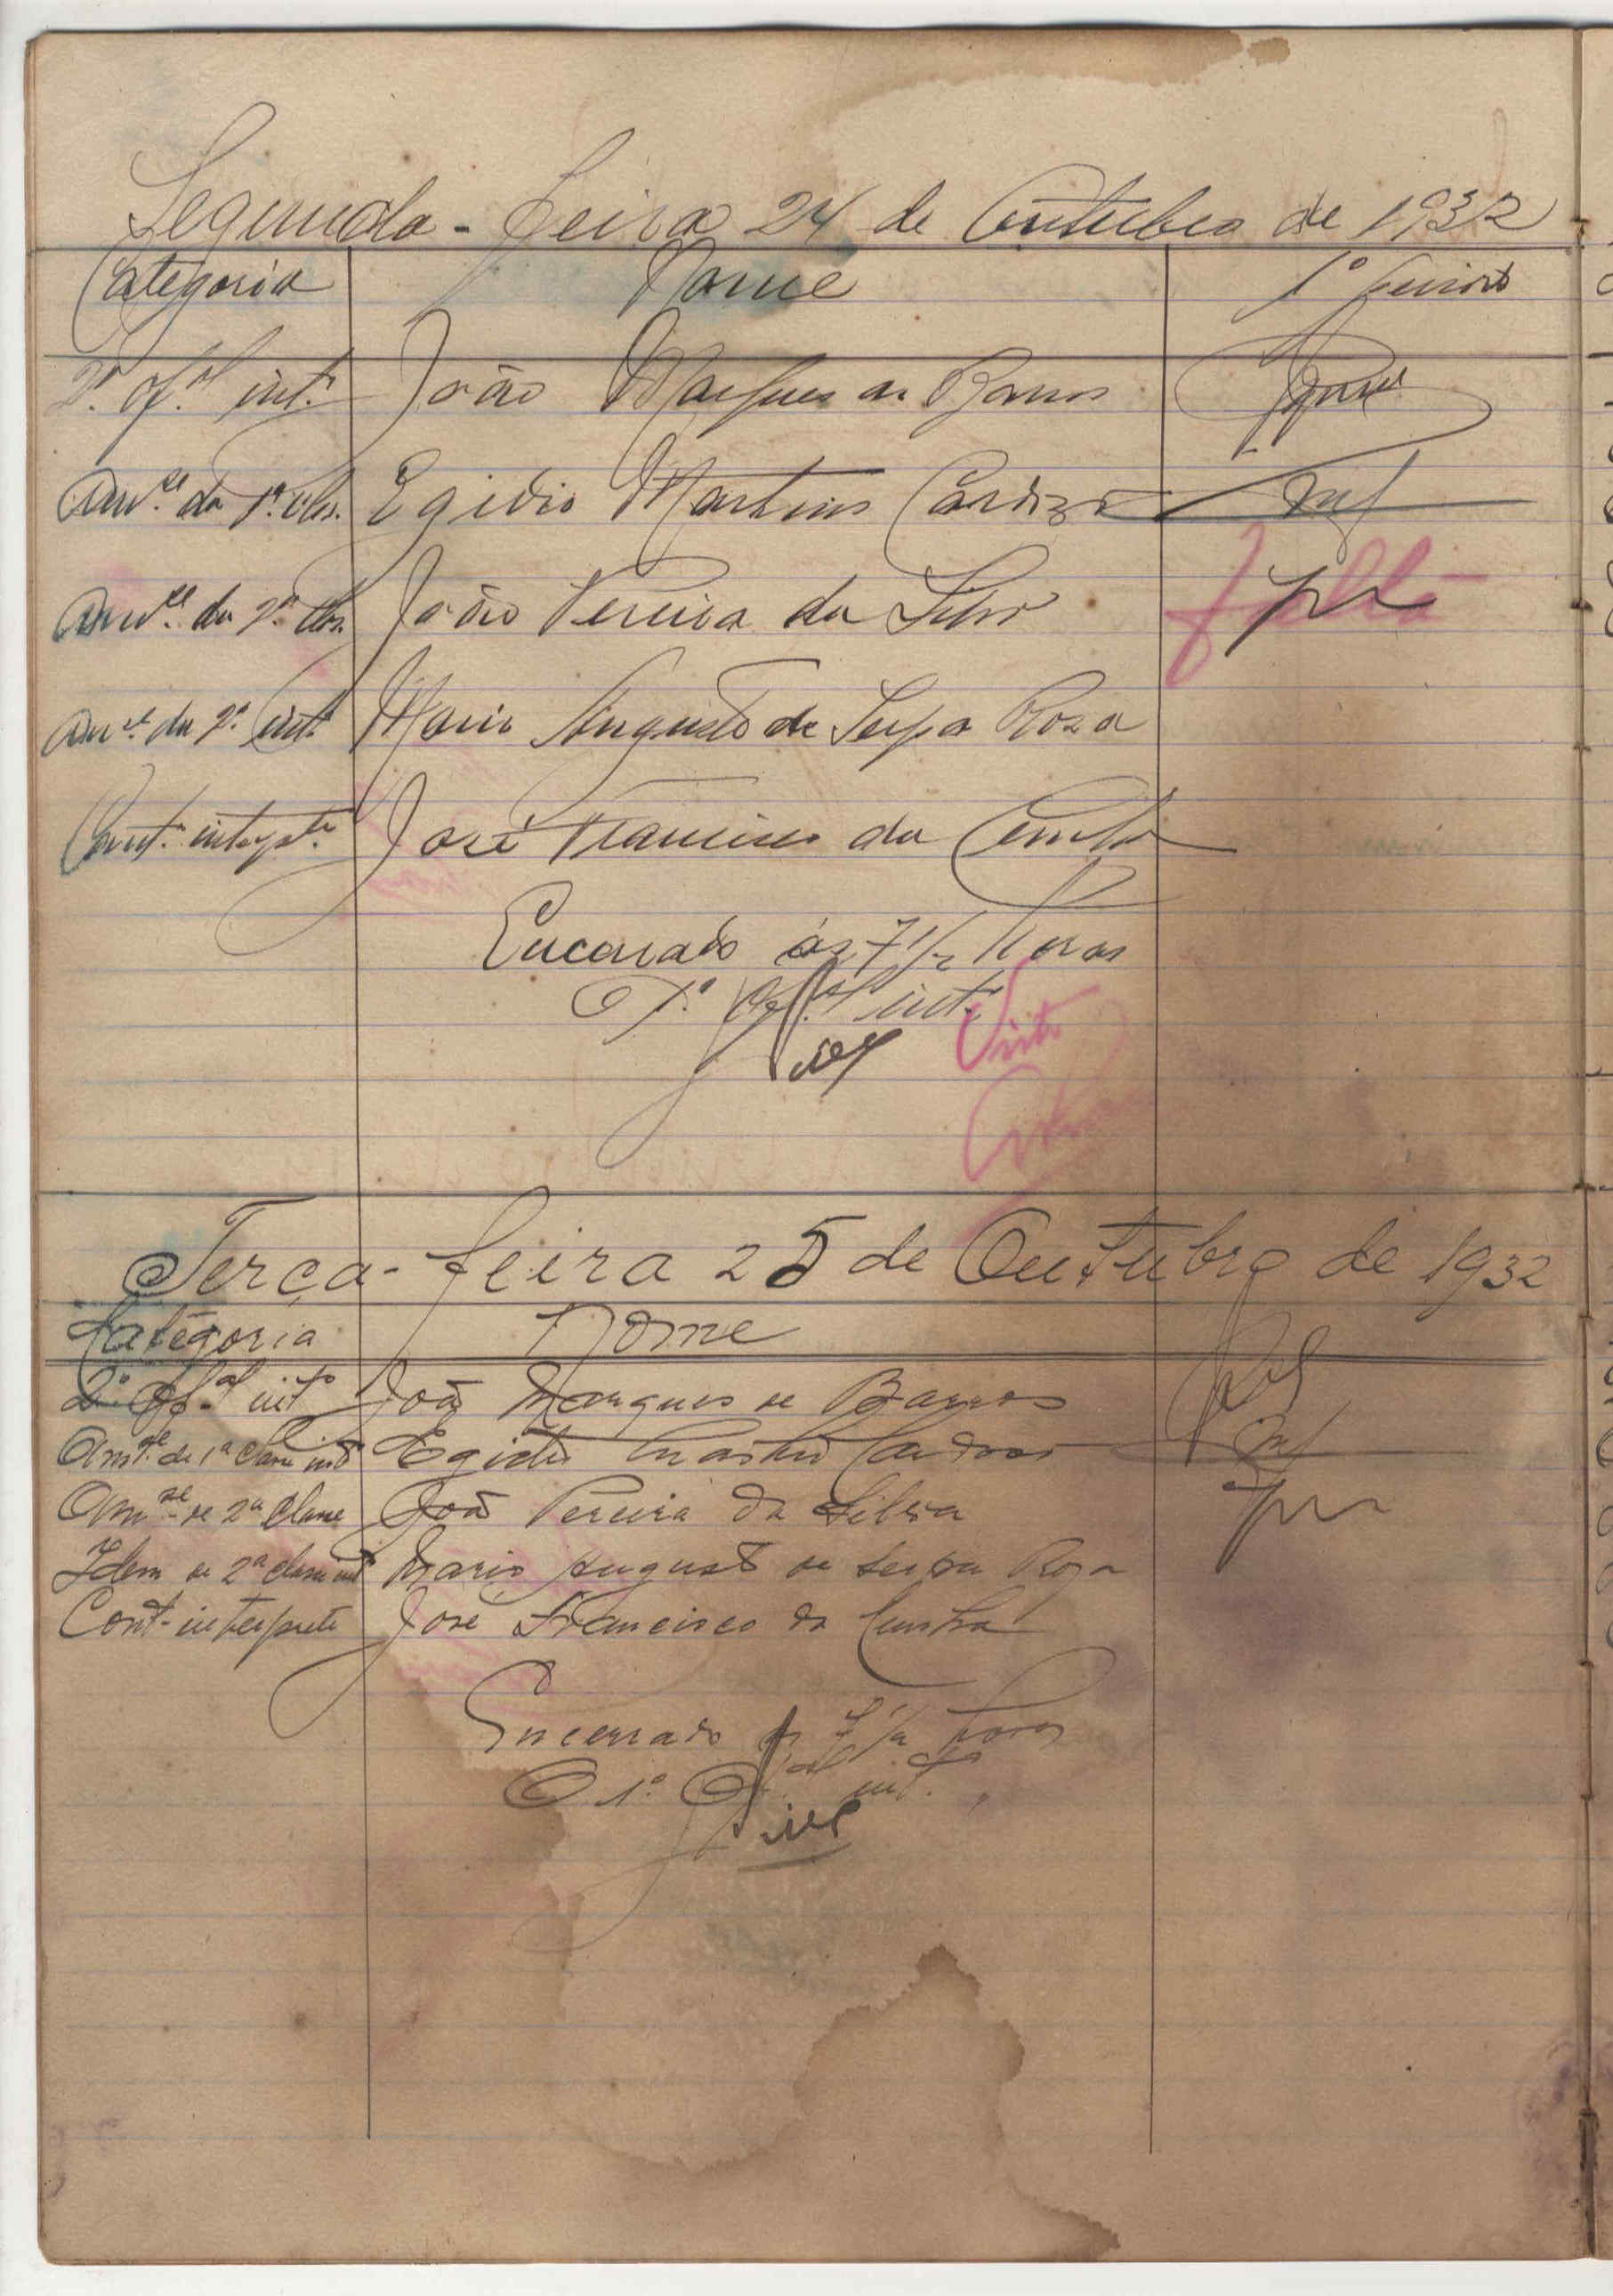 Segunda-feira 24 de Outubro de 1932
Categoria Nome 1º
2º. of.al int.º João Marques de Barros
Am.se da 1ª. Clas. Egidio Martins Cardozo
Am.se da 2ª. Clas. João Pereira da Silva falta
Am.se da 2ª. int.º Mario Augusto de Serpa Rosa
Cont. José Francisco da Cunha
Encerrado ás 7 1/2 horas
O 1.º Of.al int.º
Visto
Terça-feira 25 de Outubro de 1932
Categoria Nome
2º Of.al intº João Marques de Barros
Am.se de 1ª Classe intº Egidio Martins Cardoso
Am.se de 2ª Classe João Pereira da Silva
Idem de 2ª classe intº Mario Augusto de Serpa Rosa
Cont-interprete José Francisco da Cunha
Encerrado ás 7 1/2 horas
O 1.º Of.al int.º